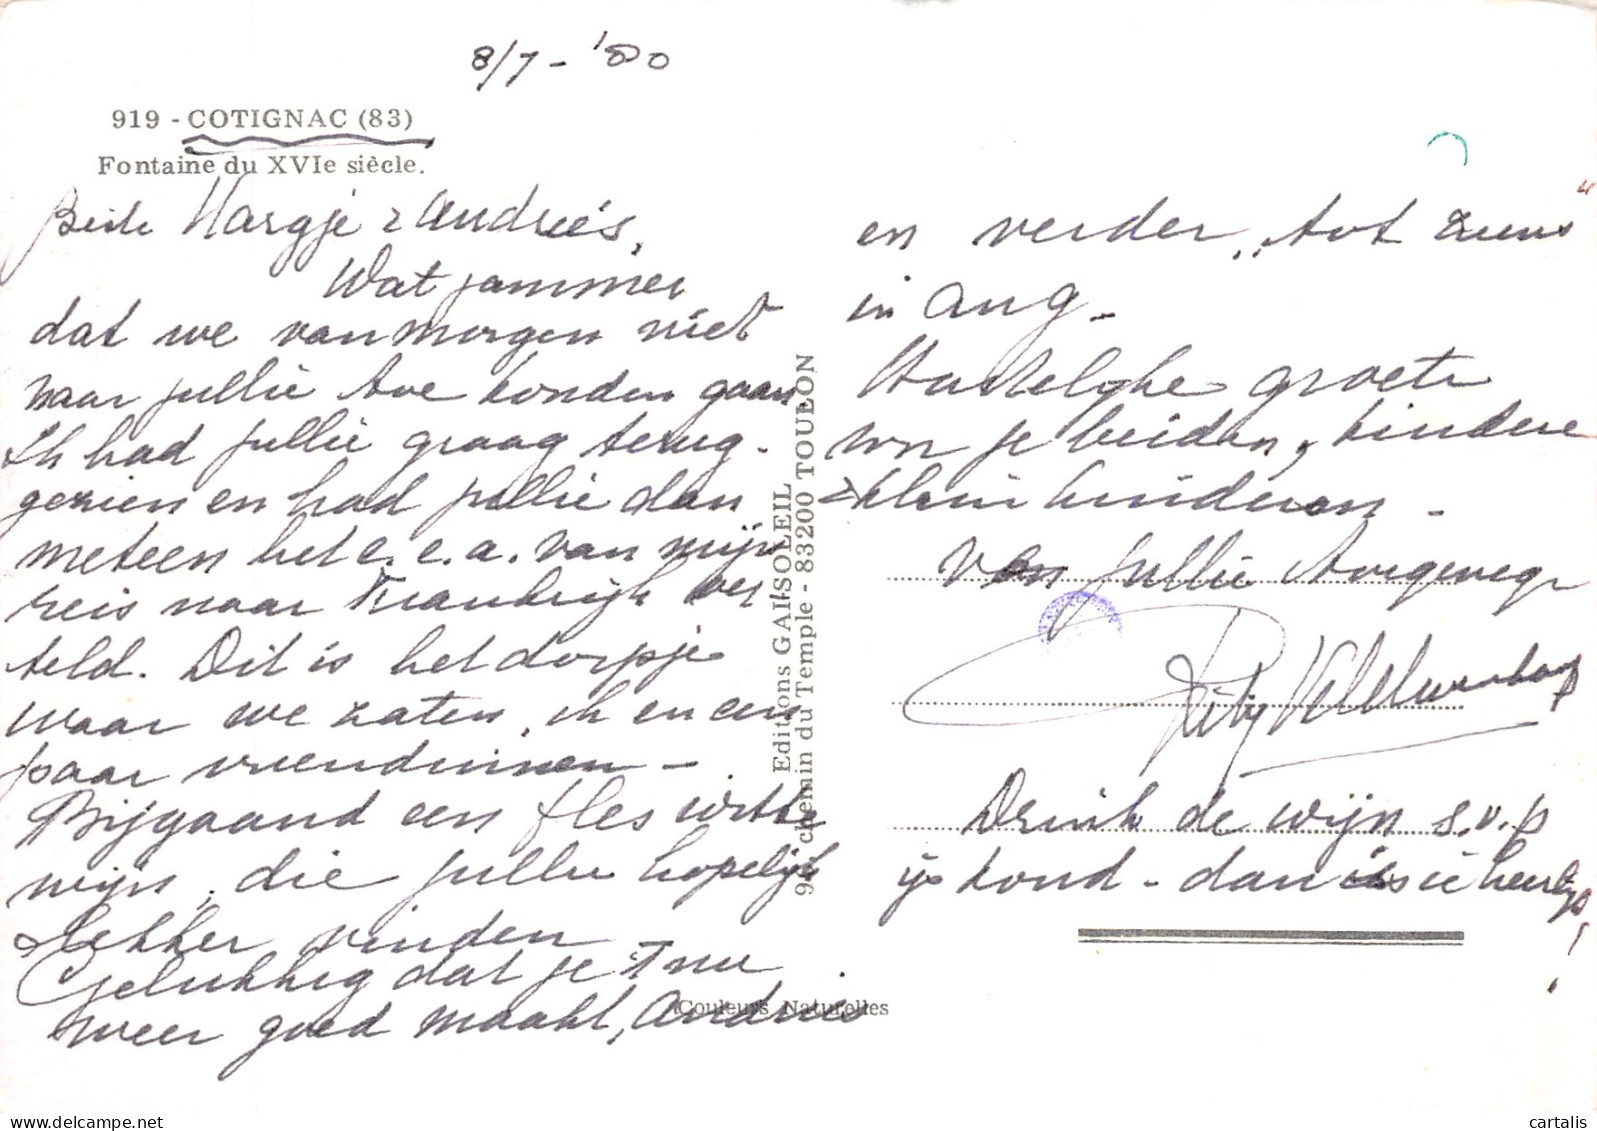 8/7 - '80
919 - COTIGNAC (83)
Fontaine du XVIe siècle.
Beste Hargje & Andreé's,
Wat jammer
dat we vanmorgen niet
naar jullie toe konden gaan.
Ik had jullie graag terug-
gezien en had jullie dan
meteen het e.e.a. van mijn
reis naar Frankrijk ver
teld. Dit is het dorpje
waar we zaten, ik en een
paar vriendinnen -
Bijgaand een fles witte
wijn, die jullie hopelijk
lekker vinden
Gelukkig dat je 't nu
weer goed maakt, Andrie
Editions GAI-SOLEIL
chemin du Temple - 83200 TOULON
Couleurs Naturelles
en verder "tot ziens"
in aug -
Hartelijke groeten
von je beiden, kindere
& kleinkinderen -
Van jullie toegenegen
Drink de wijn s.v.p
ijskoud - dan is ie heerlijk!
cartalis